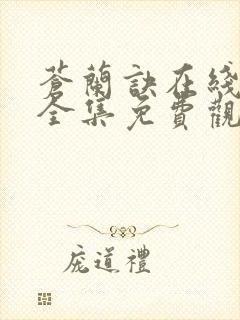 蒼蘭訣在綫
全集免費觀
庞道禮